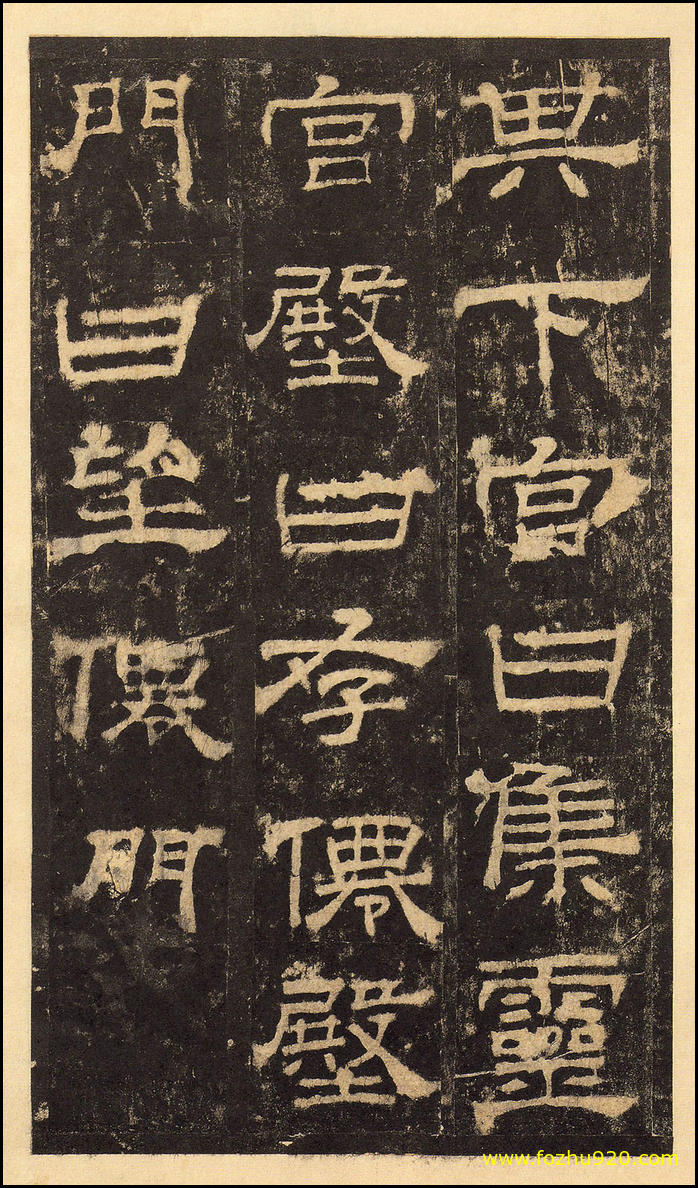 其下宮曰集靈
宮殿曰存僊殿
門曰望僊門
www.fozhu920.com